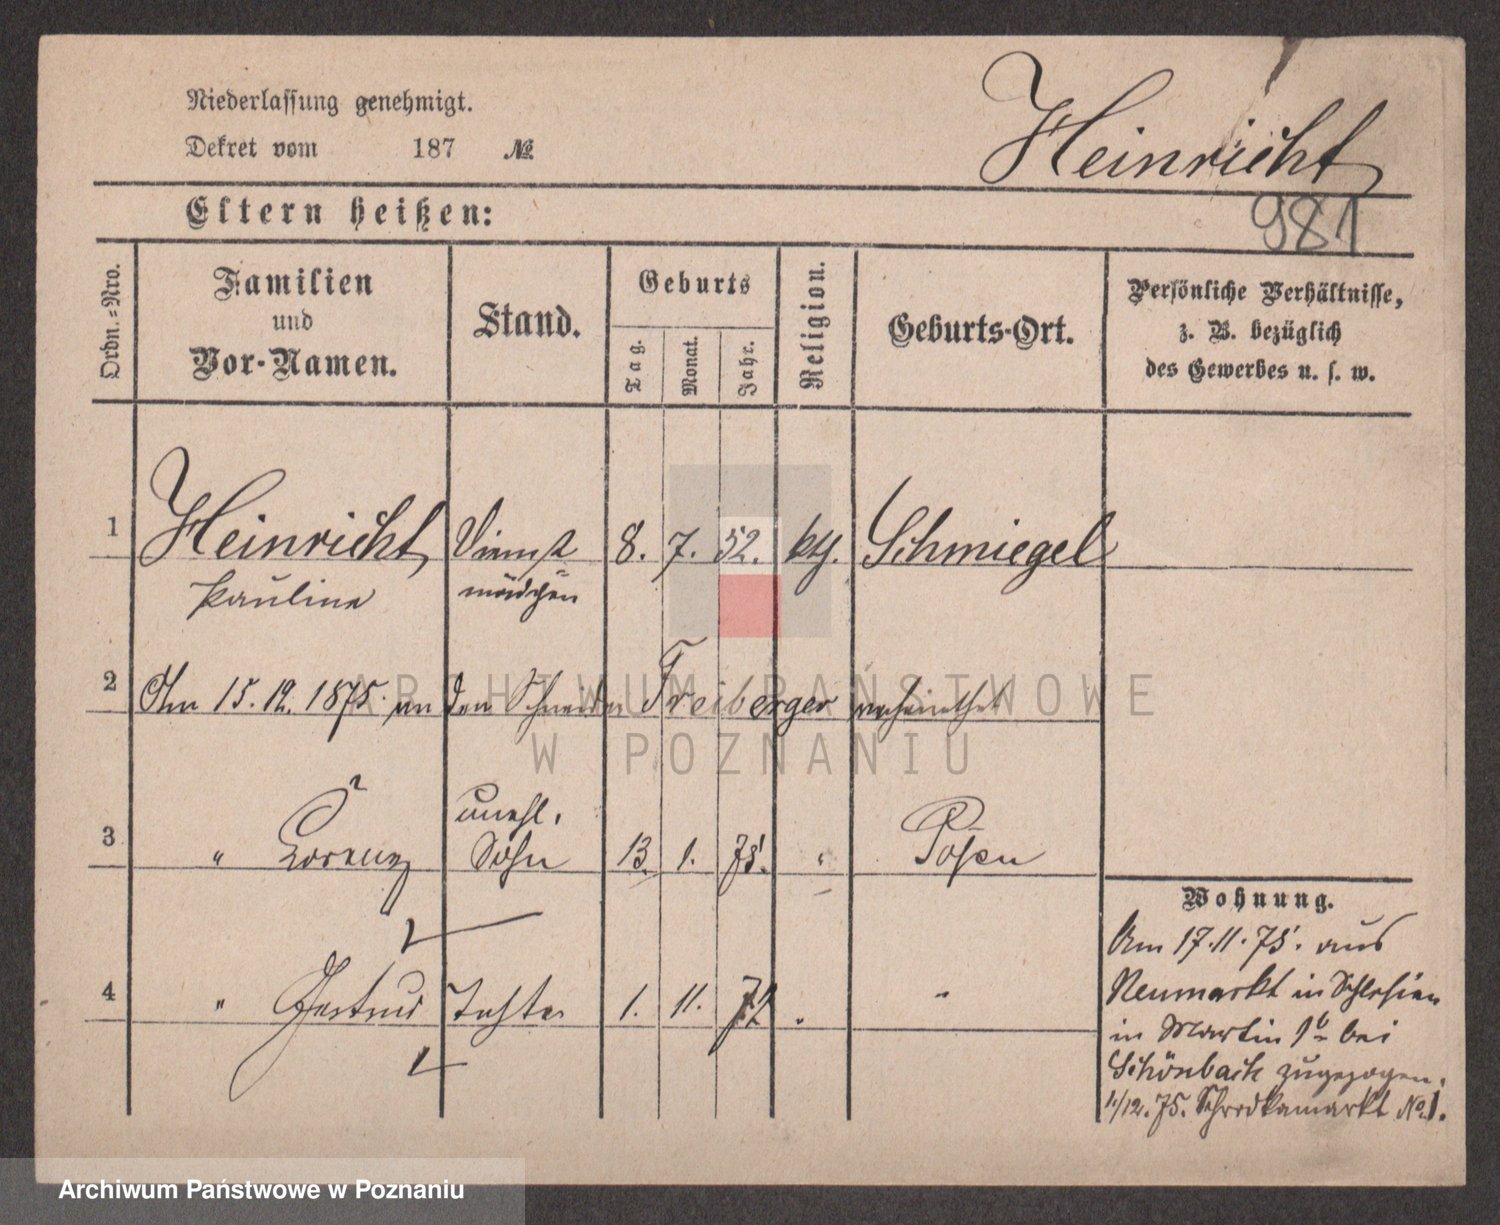 Niederlassung genehmigt.
Dekret vom 187 №
Heinricht
Eltern heißen:
981
Ordn.-Nro.
Familien
und
Vor-Namen.
Stand.
Geburts
Tag.
Monat.
Jahr.
Religion.
Geburts-Ort.
Persönliche Verhältnisse,
z. B. bezüglich
des Gewerbes u. s. w.
1 Heinricht Dienst 8. 7. 52. kth. Schmiegel
Pauline mädchen
2 Am 15.12.1875. an den Schneider Freiberger verheirathet
unehl.
3 " Lorenz Sohn 13. 1. 75. " Posen
Wohnung.
4 " Gertrud Tochter 1. 11. "
Am 17.11.75. aus
Neumarkt in Schlesien
in Martin 1b bei
Schönback zugezogen.
1/12.75. Schrodkamarkt No 1.
ARCHIWUM PAŃSTWOWE
W POZNANIU
Archiwum Państwowe w Poznaniu